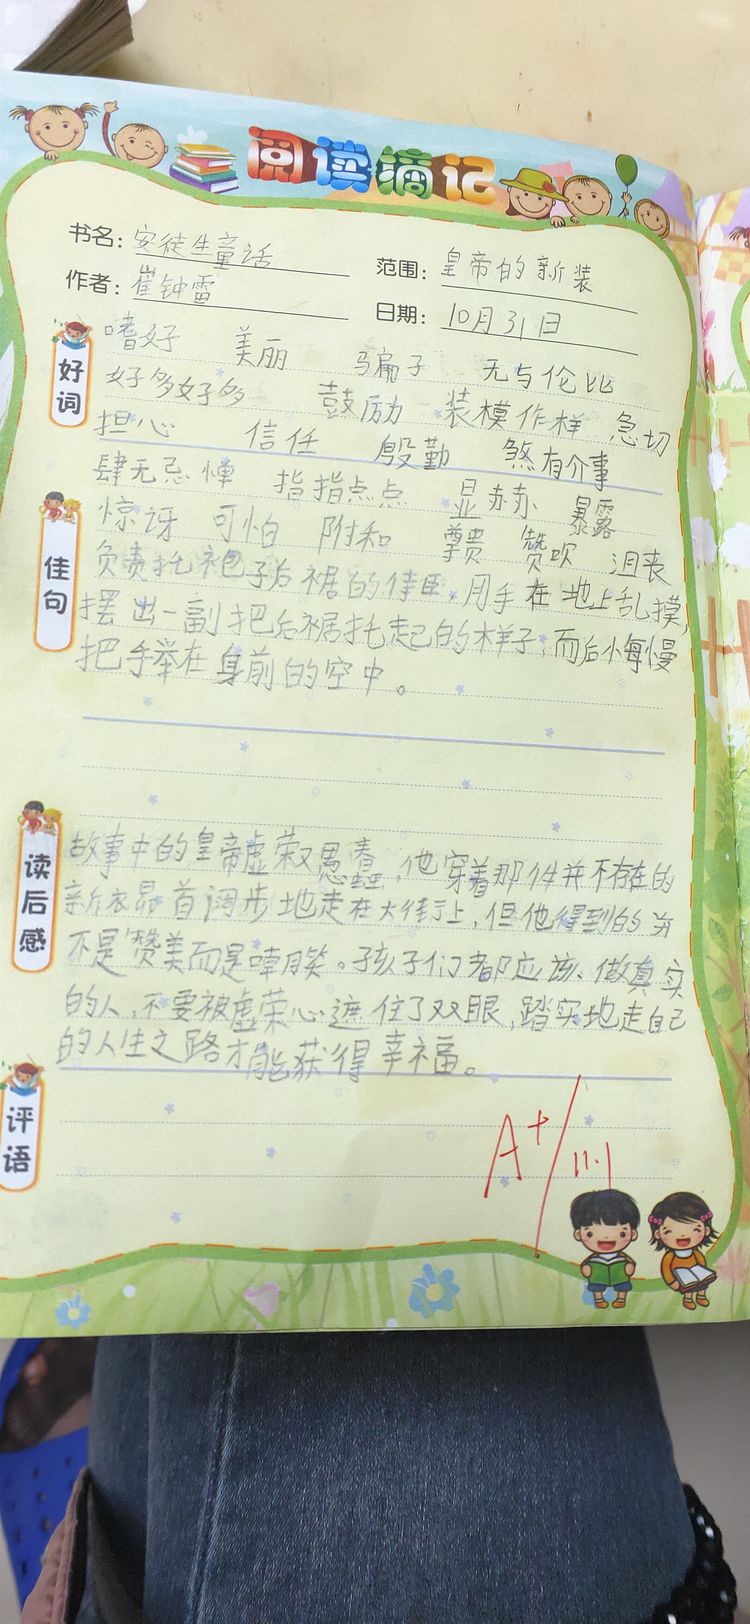 阅读摘记
书名：安徒生童话
范围：皇帝的新装
作者：崔钟雷
日期：10月31日
好词
嗜好 美丽 骗子 无与伦比
好多好多 鼓励 装模作样 急切
担心 信任 殷勤 煞有介事
肆无忌惮 指指点点 显赫赫 暴露
惊讶 可怕 附和 尊贵 赞叹 沮丧
佳句
负责托袍子后裾的侍臣，用手在地上乱摸，
摆出一副把后裾托起的样子；而后小每慢
把手举在身前的空中。
读后感
故事中的皇帝虚荣又愚蠢，他穿着那件并不存在的
新衣昂首阔步地走在大街上，但他得到的
不是赞美而是嘲笑。孩子们都应该、做真实
的人，不要被虚荣心遮住了双眼，踏实地走自己
的人生之路才能获得幸福。
评语
A+
11.1